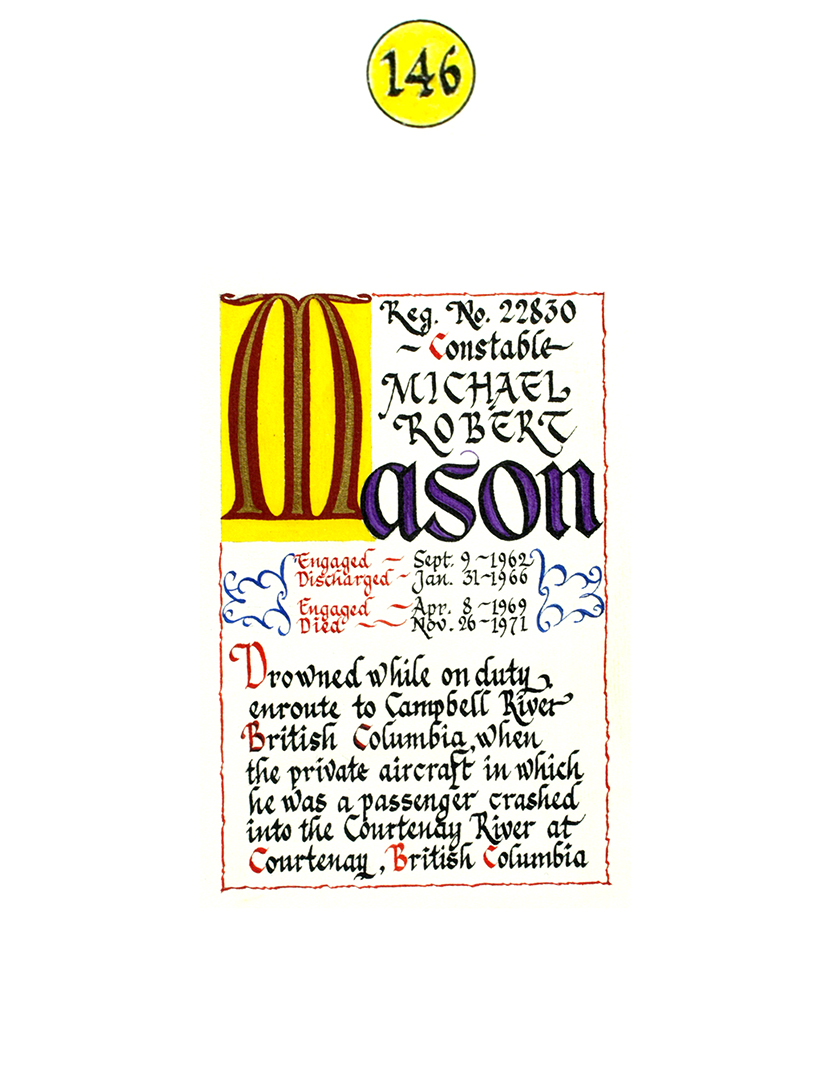 146
Reg. No. 22830
~ Constable
MICHAEL
ROBERT
Mason
Engaged ~ Sept. 9 ~ 1962
Discharged ~ Jan. 31 ~ 1966
Engaged ~ Apr. 8 ~ 1969
Died ~ Nov. 26 ~ 1971
Drowned while on duty,
enroute to Campbell River
British Columbia, when
the private aircraft in which
he was a passenger crashed
into the Courtenay River at
Courtenay, British Columbia